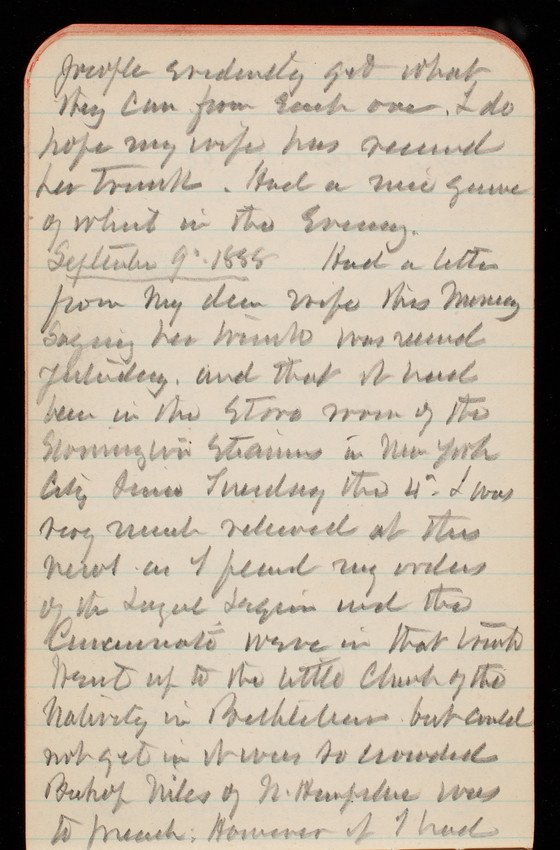 people evidently get what
they can from Each one. I do
hope my wife has received
her trunk. Had a nice game
of whist in the Evening.
September 9" 1888 Had a letter
from my dear wife this morning
saying her trunk was received
yesterday. and that it had
been in the Store room of the
Stonington Steamers in New York
City Since Tuesday the 4". I was
very much relieved at this
news as I feard my orders
of the Loyal Legion and the
Cincinnati were in that trunk
Went up to the little Church of the
Nativity in Bethlehem but could
not get in it was so crowded
Bishop Niles of N. Hampshire was
to preach. However if I had